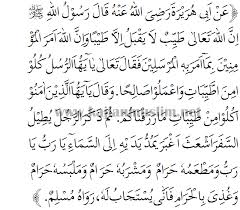 ﴿ عَنْ أَبِي هُرَيْرَةَ رَضِيَ اللهُ عَنْهُ قَالَ رَسُولُ اللهِ ﷺ
إِنَّ اللهَ تَعَالَى طَيِّبٌ لَا يَقْبَلُ إِلَّا طَيِّبًا وَإِنَّ اللهَ أَمَرَ الْمُؤْ
مِنِينَ بِمَا أَمَرَ بِهِ الْمُرْسَلِينَ فَقَالَ تَعَالَى يَا أَيُّهَا الرُّسُلُ كُلُوْا
مِنَ الطَّيِّبَاتِ وَاعْمَلُوْا صَالِحًا. وَقَالَ يَا أَيُّهَا الَّذِيْنَ آمَنُوْ
اكُلُوْا مِنْ طَيِّبَاتِ مَا رَزَقْنَاكُمْ. ثُمَّ ذَكَرَ الرَّجُلَ يُطِيْلُ
السَّفَرَ أَشْعَثَ أَغْبَرَ يَمُدُّ يَدَيْهِ إِلَى السَّمَاءِ يَا رَبِّ يَا
رَبِّ وَمَطْعَمُهُ حَرَامٌ وَمَشْرَبُهُ حَرَامٌ وَمَلْبَسُهُ حَرَامٌ
وَغُذِيَ بِالْحَرَامِ فَأَنَّى يُسْتَجَابُ لَهُ، رَوَاهُ مُسْلِمٌ. ﴾